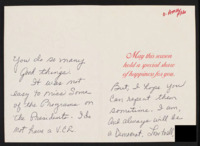 You do so many
good things.
It was not
easy to miss some
of the Programs on
the Presidents. I do
not have a V.C.R.
May this season
hold a special share
of happiness for you.
But, I hope you
can repeat them
sometime. I am,
and always will be
a Democrat.